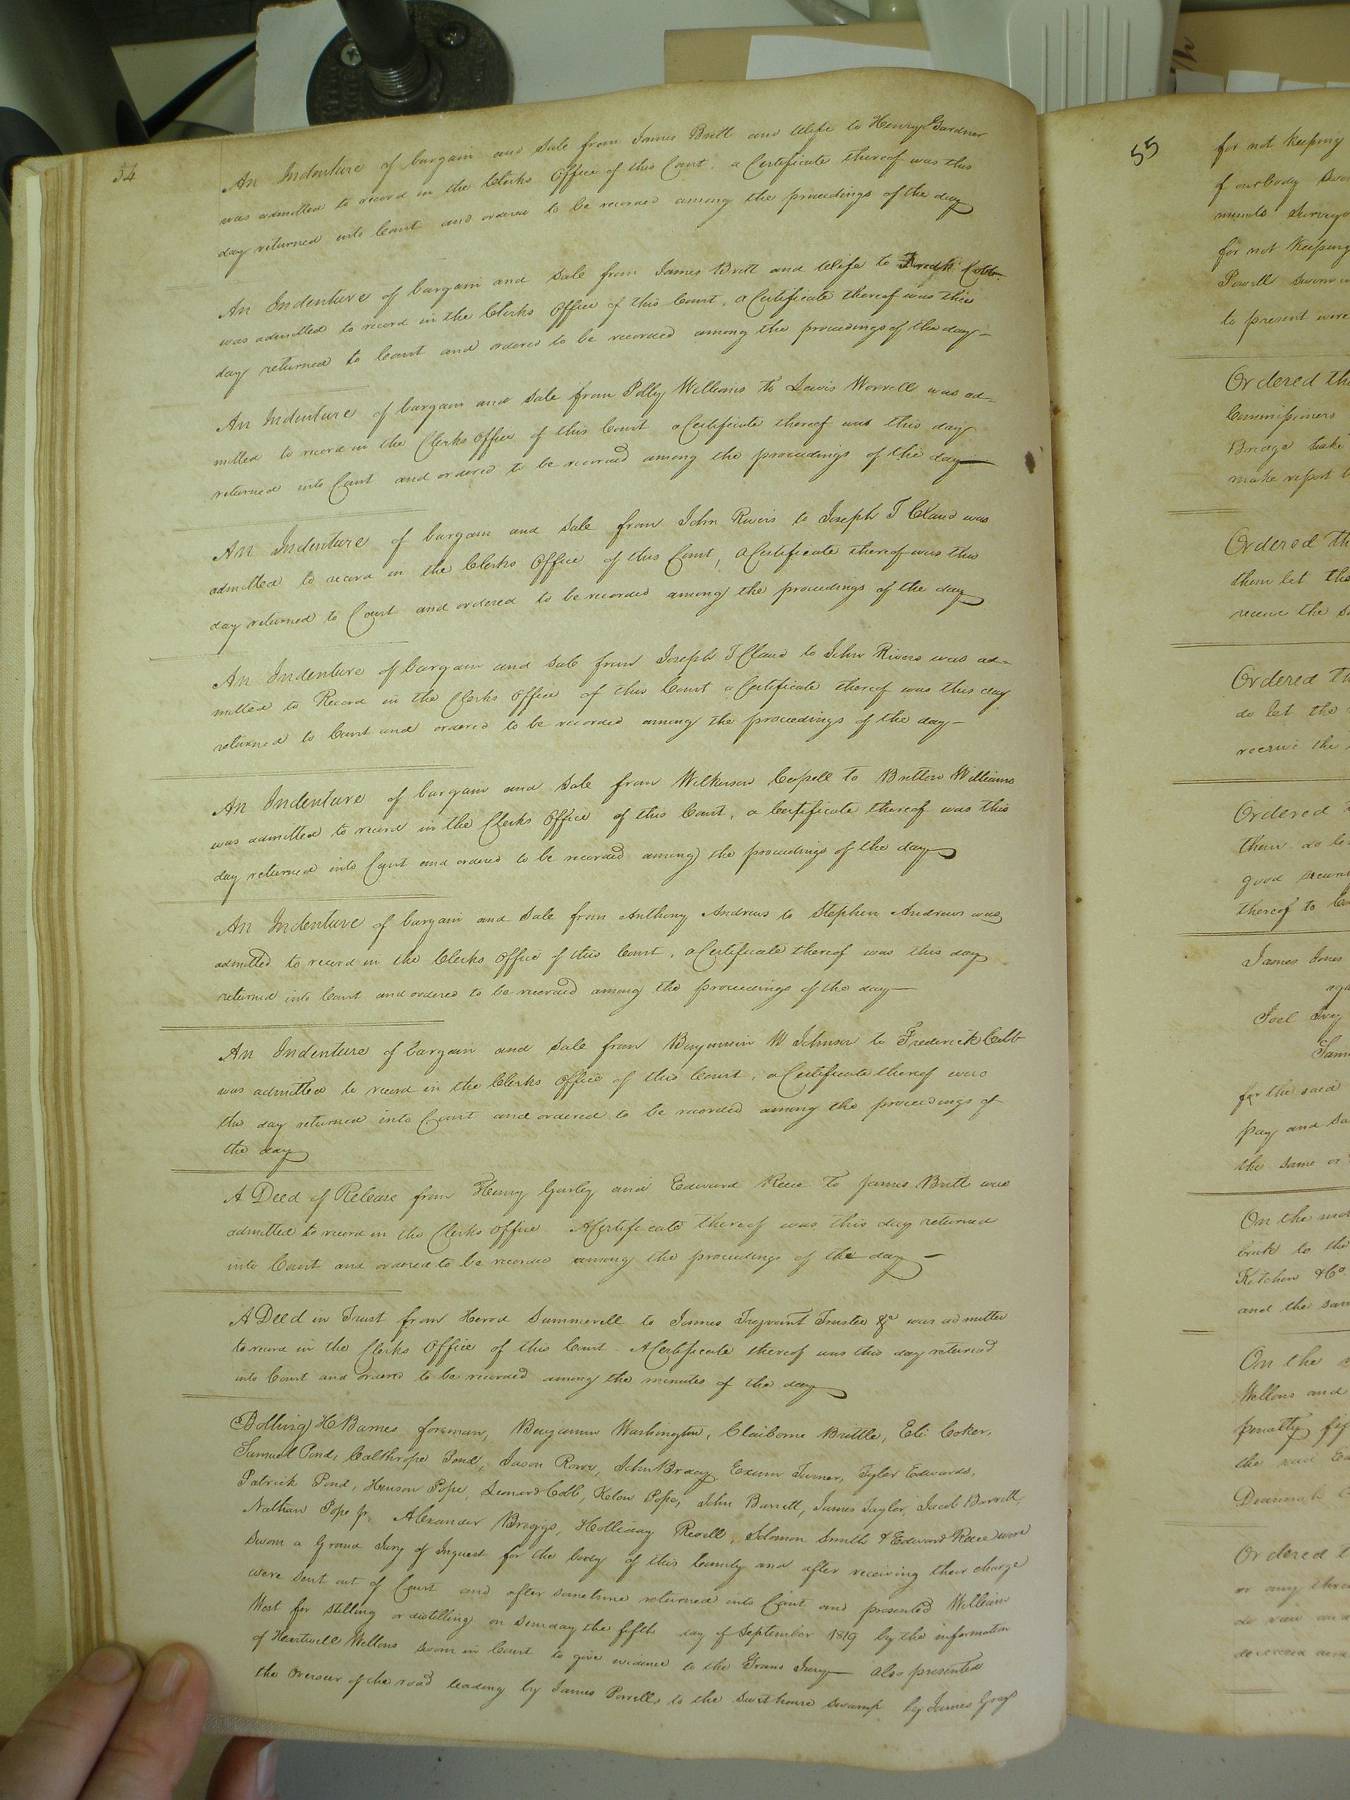 54
An Indenture of bargain and Sale from James Britt and Wife to Henry Gardner
was admitted to record in the Clerks Office of this Court. a Certificate thereof was this
day returned into Court and ordered to be recorded among the proceedings of the day
An Indenture of bargain and Sale from James Britt and Wife to Fredk Cobb
was admitted to record in the Clerks Office of this Court, a Certificate thereof was this
day returned to Court and ordered to be recorded among the proceedings of the day—
An Indenture of bargain and Sale from Polly Williams to Lewis Worrell was ad=
mitted to record in the Clerks Office of this Court a Certificate thereof was this day
returned into Court and ordered to be recorded among the proceedings of the day—
An Indenture of bargain and Sale from John Rivers to Joseph T Claud was
admitted to record in the Clerks Office of this Court, a Certificate thereof was this
day returned to Court and ordered to be recorded among the proceedings of the day
An Indenture of bargain and Sale from Joseph T Claud to John Rivers was ad=
mitted to Record in the Clerks Office of this Court a Certificate thereof was this day
returned to Court and ordered to be recorded among the proceedings of the day—
An Indenture of bargain and Sale from Wilkerson Capell to Britton Williams
was admitted to record in the Clerks Office of this Court, a Certificate thereof was this
day returned into Court and ordered to be recorded among the proceedings of the day
An Indenture of bargain and Sale from Anthony Andrews to Stephen Andrews was
admitted to record in the Clerks Office of this Court, a Certificate thereof was this day
returned into Court and ordered to be recorded among the proceedings of the day—
An Indenture of bargain and Sale from Benjamin W Johnson to Frederick Cobb
was admitted to record in the Clerks Office of this Court, a Certificate thereof was
this day returned into Court and ordered to be recorded among the proceedings of
the day
A Deed of Release from Henry Gurley and Edward Reese to James Britt was
admitted to record in the Clerks Office A Certificate thereof was this day returned
into Court and ordered to be recorded among the proceedings of the day—
A Deed in Trust from Herod Summerell to James Trezvant Trustee &c was admitted
to record in the Clerks Office of this Court. A Certificate thereof was this day returned
into Court and ordered to be recorded among the minutes of the day
Bolling H Barnes foreman, Benjamin Washington, Claiborne Brittle, Eli Coker,
Samuel Pond, Calthrope Pond, Jason Rowe, John Bracy, Exum Turner, Tyler Edwards,
Patrick Pond, Henson Pope, Leonard Cobb, Kelow Pope, John Barrett, James Taylor, Jacob Barrett,
Nathan Pope jr. Alexander Briggs, Holliday Revell, Solomon Smith & Edward Reese were
sworn a Grand Jury of Inquest for the body of this County and after receiving their charge
were sent out of Court and after sometime returned into Court and presented William
West for stilling or distilling on Sunday the fifth day of September 1819 by the information
of Heartwell Wellons sworn in Court to give evidence to the Grand Jury— also presented
the overseer of the road leading by James Powells to the swamp by James Gray
55
for not keeping
for not keeping
Powell sworn
to present were
Ordered
Commissioners
Bridge
make report
Ordered
them let the
receive the
Ordered
do let the
receive the
Ordered
them do
good
thereof to
James Jones
Joel
for the said
pay and
the same or
On the
to the
Kitchen & Co.
and the
On the
Wellons and
penalty
the said
Ordered
or any three